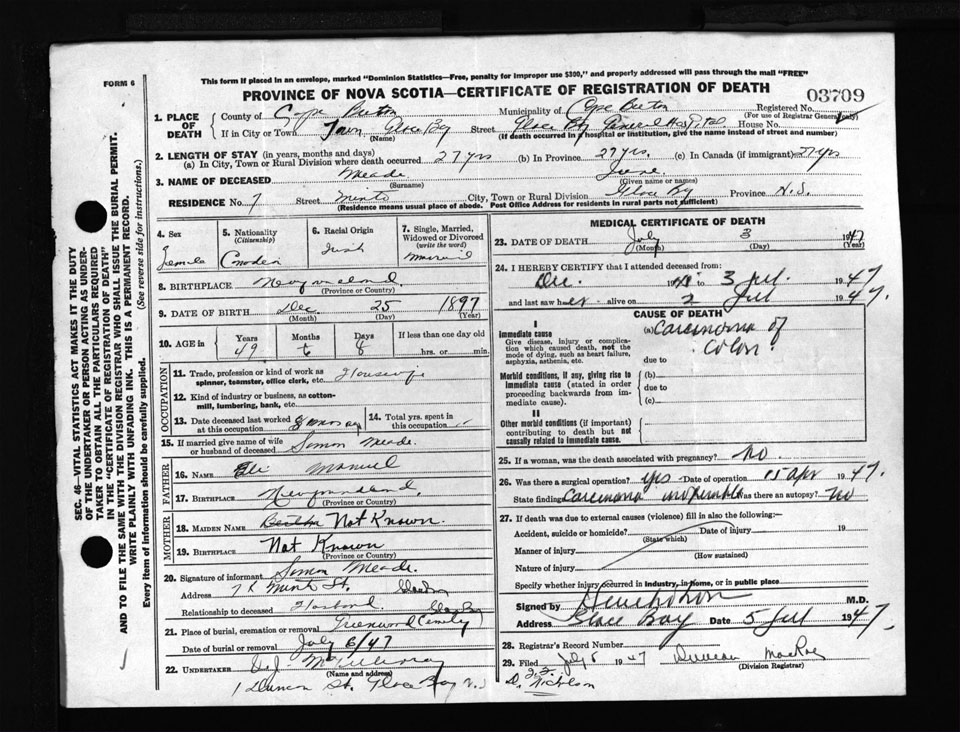 FORM 6
This form if placed in an envelope, marked "Dominion Statistics—Free, penalty for improper use $300," and properly addressed will pass through the mail "FREE"
PROVINCE OF NOVA SCOTIA—CERTIFICATE OF REGISTRATION OF DEATH
03709
1. PLACE OF DEATH
County of Cape Breton Municipality of Cape Breton Registered No.
(For use of Registrar General only)
If in City or Town Town Glace Bay Street Glace Bay General Hospital House No.
(Name) (If death occurred in a hospital or institution, give the name instead of street and number)
2. LENGTH OF STAY (in years, months and days)
(a) In City, Town or Rural Division where death occurred 27 yrs (b) In Province 27 yrs. (c) In Canada (if immigrant) 27 yrs
3. NAME OF DECEASED Meade
(Surname) (Given name or names)
RESIDENCE No. 7 Street Minto City, Town or Rural Division Glace Bay Province N.S.
(Residence means usual place of abode. Post Office Address for residents in rural parts not sufficient)
4. Sex
Female
5. Nationality
(Citizenship)
Canadian
6. Racial Origin
Irish
7. Single, Married, Widowed or Divorced
(write the word)
Married
8. BIRTHPLACE Newfoundland
(Province or Country)
9. DATE OF BIRTH Dec 25 1897
(Month) (Day) (Year)
10. AGE in
Years Months Days If less than one day old
49 6 8 hrs. or min.
OCCUPATION
11. Trade, profession or kind of work as spinner, teamster, office clerk, etc. Housewife
12. Kind of industry or business, as cotton-mill, lumbering, bank, etc.
13. Date deceased last worked at this occupation
14. Total yrs. spent in this occupation
15. If married give name of wife or husband of deceased Simon Meade
FATHER
16. NAME Eli Manuel
17. BIRTHPLACE Newfoundland
(Province or Country)
MOTHER
18. MAIDEN NAME Not Known.
19. BIRTHPLACE Not Known
(Province or Country)
20. Signature of informant Simon Meade.
Address 7 Minto St.
Relationship to deceased Husband Glace Bay
21. Place of burial, cremation or removal Greenwood Cemetery
Date of burial or removal July 6/47
22. UNDERTAKER
(Name and address)
St. Glace Bay N.S
MEDICAL CERTIFICATE OF DEATH
23. DATE OF DEATH July 3 1947
(Month) (Day) (Year)
24. I HEREBY CERTIFY that I attended deceased from:
Dec. to 3 Jul. 1947
and last saw her alive on 2 Jul 1947.
CAUSE OF DEATH
I
Immediate cause
Give disease, injury or complication which caused death, not the mode of dying, such as heart failure, asphyxia, asthenia, etc.
(a) Carcinoma of
Colon
due to
Morbid conditions, if any, giving rise to immediate cause (stated in order proceeding backwards from immediate cause).
(b)
due to
(c)
II
Other morbid conditions (if important) contributing to death but not causally related to immediate cause.
25. If a woman, was the death associated with pregnancy? No.
26. Was there a surgical operation? Yes Date of operation 15 Apr 1947.
State finding Carcinoma inoperable Was there an autopsy? No
27. If death was due to external causes (violence) fill in also the following:—
Accident, suicide or homicide? Date of injury 19
(State which)
Manner of injury
(How sustained)
Nature of injury
Specify whether injury occurred in industry, in home, or in public place
Signed by M.D.
Address Glace Bay Date 5 Jul 1947
28. Registrar's Record Number
29. Filed July 5 1947 Duncan MacRae
(Division Registrar)
D. Nicholson
SEC. 46—VITAL STATISTICS ACT MAKES IT THE DUTY
OF THE UNDERTAKER OR PERSON ACTING AS UNDER-
TAKER TO OBTAIN ALL THE PARTICULARS REQUIRED
IN THE "CERTIFICATE OF REGISTRATION OF DEATH"
AND TO FILE THE SAME WITH THE DIVISION REGISTRAR WHO SHALL ISSUE THE BURIAL PERMIT.
WRITE PLAINLY WITH UNFADING INK. THIS IS A PERMANENT RECORD.
Every item of information should be carefully supplied. (See reverse side for instructions.)